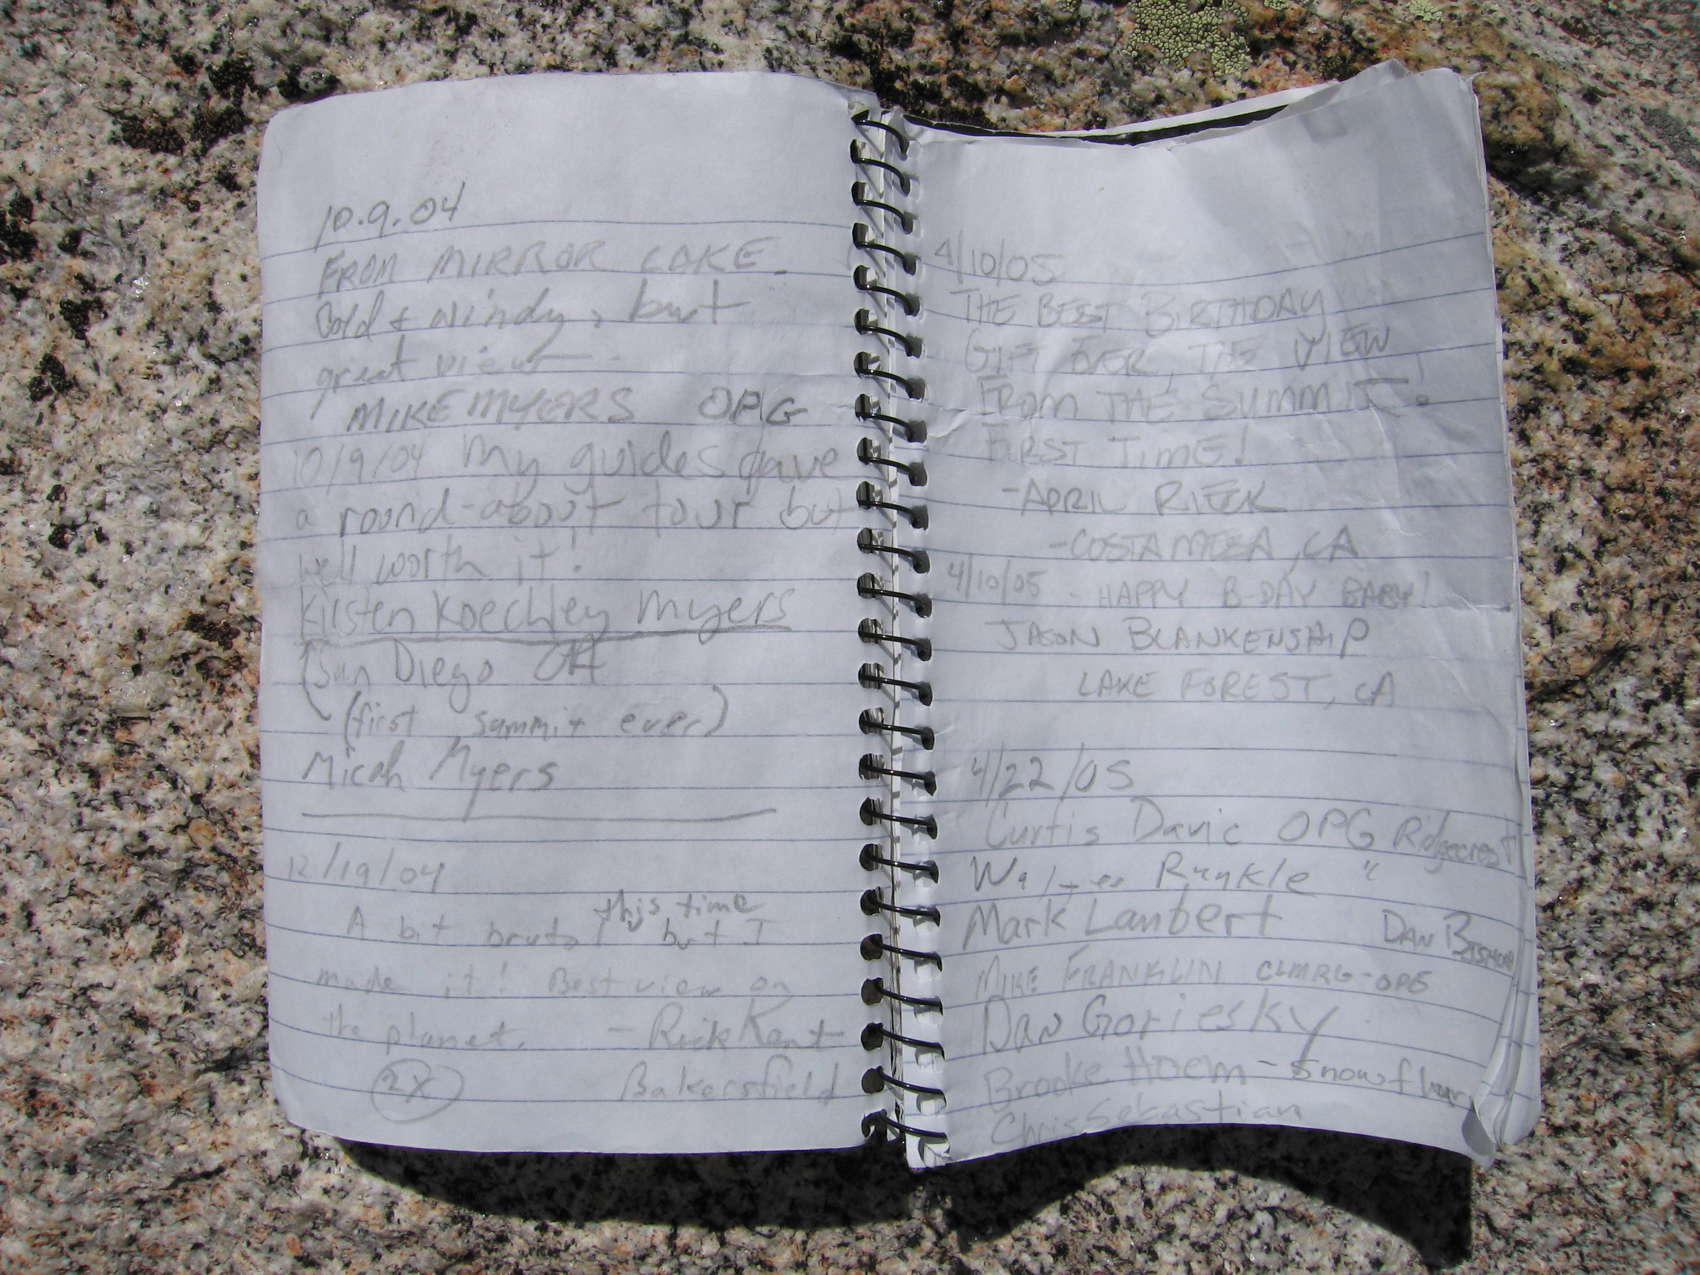 10.9.04
FROM MIRROR LAKE
Cold & windy, but
great view
MIKE MYERS OPG
10/9/04 My guides gave
a round-about tour but
well worth it!
Kirsten Koechley Myers
San Diego CA
(first summit ever)
Micah Myers
12/19/04
this time
A bit brutal but I
made it! Best view on
the planet. - Rick Kent
2X Bakersfield
4/10/05
THE BEST BIRTHDAY
GIFT EVER, THE VIEW
FROM THE SUMMIT.
FIRST TIME!
-APRIL RIECK
-COSTA MESA, CA
4/10/05 - HAPPY B-DAY BABY!
JASON BLANKENSHIP
LAKE FOREST, CA
4/22/05
Curtis Davis OPG Ridgecrest
Runkle "
Mark Lambert DAN BISHOP
MIKE FRANKLIN CLMRG-OPG
Dan Goriesky
Brooke Hoem -
Chris Sebastian